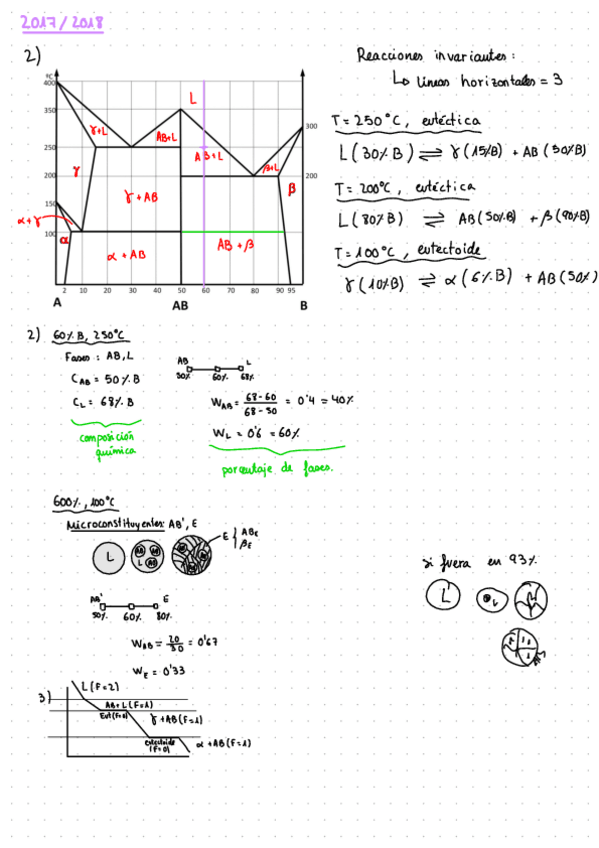 2017/2018
2)
Reacciones invariantes:
↳ líneas horizontales = 3
°C
400
350
250
200
150
100
300
200
L
γ+L
AB+L
AB+L
β+L
γ
γ + AB
β
α+γ
α
α + AB
AB + β
2 10 20 30 40 50 60 70 80 90 95
A
AB
B
T = 250°C, eutéctica
L (30% B) ⇌ γ (15% B) + AB (50% B)
T = 200°C, eutéctica
L (80% B) ⇌ AB (50% B) + β (90% B)
T = 100°C, eutectoide
γ (10% B) ⇌ α (6% B) + AB (50%)
2) 60% B, 250°C
Fases: AB, L
C_AB = 50% B
C_L = 68% B
composición
química
AB L
50% 60% 68%
W_AB = (68-60)/(68-50) = 0'4 = 40%
W_L = 0'6 = 60%
porcentaje de fases.
600%, 100°C
Microconstituyentes: AB', E
L
AB AB
L AB
E { AB_E
β_E
AB' E
50% 60% 80%
W_AB = 20/30 = 0'67
W_E = 0'33
si fuera en 93%
L
L
3)
L (F=2)
AB+L (F=1)
Eut (F=0)
γ+AB (F=1)
eutectoide
(F=0)
α+AB (F=1)